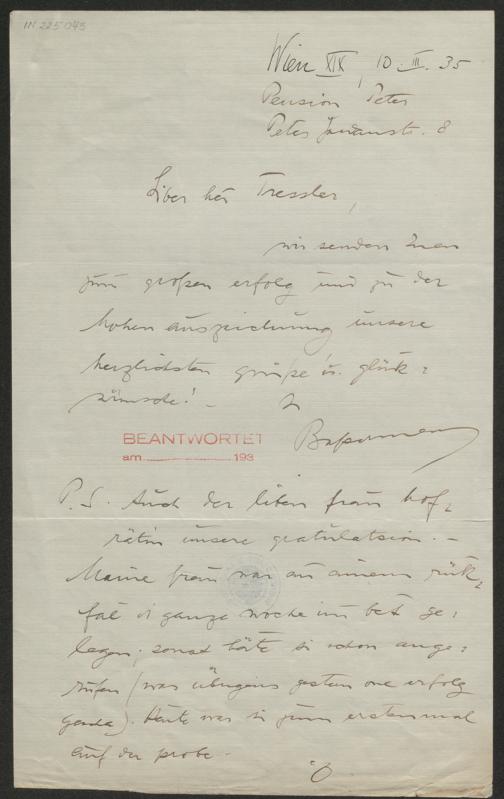 IN 225045
Wien XIX, 10. III. 35
Pension Peter
Peter Jordanstr. 8
Liber her Tressler,
wir senden Inen
zum großen erfolg und zu der
hohen auszeichnung unsere
herzlichsten grüße u. glük-
wünsche! –
Bassermann
BEANTWORTET
am 193
P. S. Auch der liben frau hof-
rätin unsere gratulatsion. –
Meine frau war an ainem rük-
fal di ganze woche im bet ge-
legen, sonst hätte si schon ange-
rufen (was übrigens gestern one erfolg
geschah). Heute war si zum erstenmal
auf der probe. –